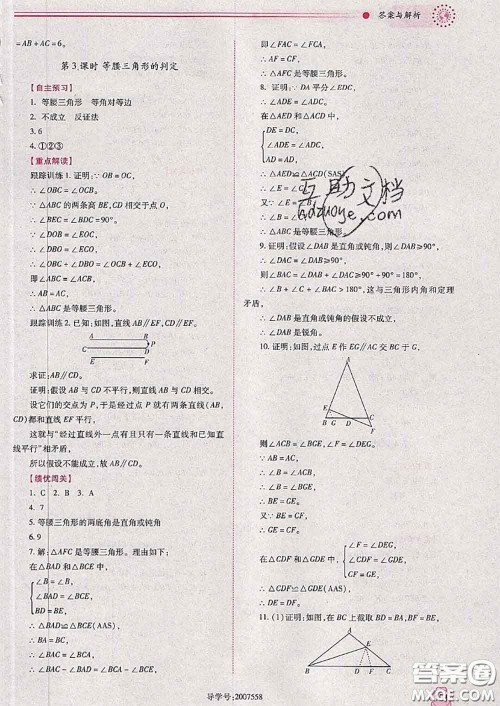 答案与解析
=AB+AC=6。
第3课时 等腰三角形的判定
【自主预习】
1. 等腰三角形 等角对等边
2. 不成立 反证法
3.6
4.①②③
【重点解读】
跟踪训练1. 证明:∵OB=OC,
∴∠OBC=∠OCB。
∵△ABC的两条高BE,CD相交于点O,
∴∠BDO=∠CEO。
∵∠BOD=∠EOC,
∴∠OBC+∠DBO=∠OCB+∠ECO,
即∠ABC=∠ACB。
∴AB=AC。
∴△ABC是等腰三角形。
跟踪训练2. 已知:如图,直线AB∥EF,CD∥EF。
A B
C P
D
E F
求证:AB∥CD。
证明:假设AB与CD不平行,则直线AB与CD相交。
设它们的交点为P,于是经过点P就有两条直线(AB,
CD)都和直线EF平行。
这就与“经过直线外一点有且只有一条直线和已知直
线平行”相矛盾。
所以假设不能成立,故AB∥CD。
【绩优闯关】
1. C 2. B 3. A
4. 7
5. 等腰三角形的两底角是直角或钝角
6.9
7. 解:△AFC是等腰三角形。理由如下:
在△BAD和△BCE中,
∠B=∠B,
∠BAD=∠BCE,
BD=BE,
∴△BAD≌△BCE(AAS)。
∴BA=BC。
∴∠BAC=∠BCA。
∴∠BAC-∠BAD=∠BCA-∠BCE,
即∠FAC=∠FCA。
∴AF=CF。
∴△AFC是等腰三角形。
8. 证明:∵DA平分∠EDC,
∴∠ADE=∠ADC。
在△AED和△ACD中,
∠E=∠ACD,
∠ADE=∠ADC,
AD=AD,
∴△AED≌△ACD(AAS)。
∴△ABC是等腰三角形。
9. 证明:假设∠DAB是直角或钝角,则∠DAB≥90°,
则∠BAC=∠DAB+∠DAC≥90°+90°=180°。
∴∠B+∠C+∠BAC>180°,这与三角形内角和定理
矛盾。
∴∠DAB是直角或钝角的假设不成立。
∴∠DAB是锐角。
10. 证明:如图,过点E作EG∥AC交BC于G,
A
E
B G D C
F
则∠ACB=∠EGB,∠F=∠DEG。
∵AB=AC,
∴∠B=∠ACB。
∴∠B=∠EGB。
∴BE=GE。
又∵BE=CF,
∴CF=GE。
在△CDF和△GDE中,
∠F=∠DEG,
∠CDF=∠GDE,
CF=GE,
∴△CDF≌△GDE(AAS)。
∴DE=DF。
11. (1)证明:如图,在BC上截取BD=BE,连接DE。
A
E
B D F C
互助文档
hdzuoye.com
导学号:2007558
答案圈
MXQE.COM